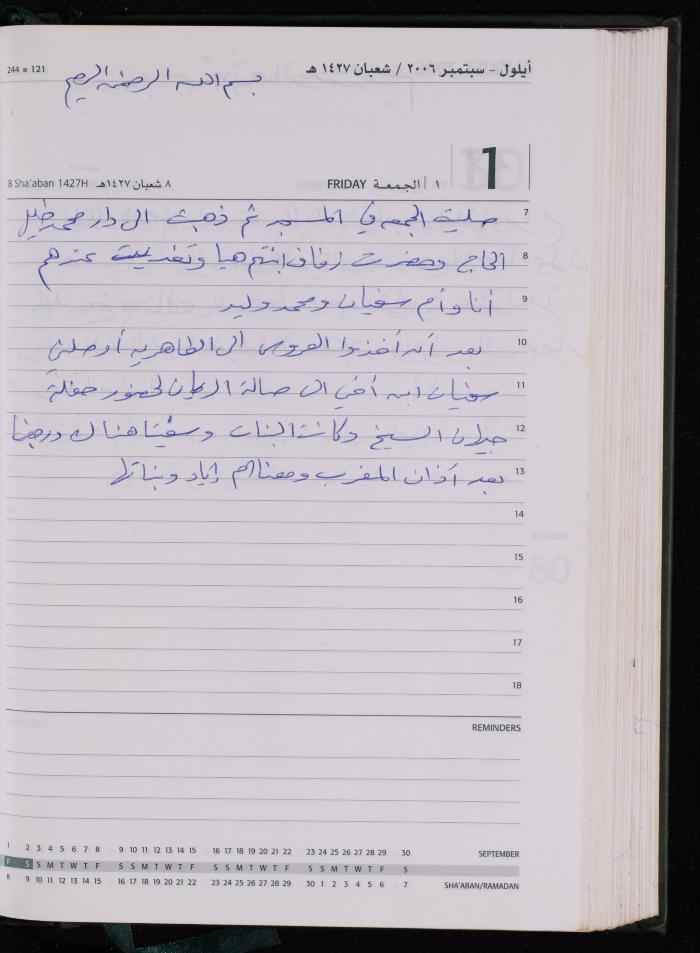 أيلول - سبتمبر ٢٠٠٦ / شعبان ١٤٢٧ هـ
244 ■ 121
بسم الله الرحمن الرحيم
1
١ الجمعة FRIDAY
٨ شعبان ١٤٢٧هـ 8 Sha'aban 1427H
7 صليت الجمعه في المسجد ثم ذهبت الى دار محمد خليل
8 الحاج وحضرت زفاف ابنتهم هبا وتغديت عندهم
9 أنا وأم سفيان ومحمد وليد
10 بعد أن أخذوا العروس الى الظاهريه أوصلني
11 سفيان ابن أخي الى صالة الريان لحضور حفلة
12 جيران الشيخ وكانت البنات هناك ورجعنا
13 بعد أذان المغرب ومعنا ام إياد وبناتها
14
15
16
17
18
REMINDERS
1 2 3 4 5 6 7 8 9 10 11 12 13 14 15 16 17 18 19 20 21 22 23 24 25 26 27 28 29 30 SEPTEMBER
F S S M T W T F S S M T W T F S S M T W T F S S M T W T F S
8 9 10 11 12 13 14 15 16 17 18 19 20 21 22 23 24 25 26 27 28 29 30 1 2 3 4 5 6 7 SHA'ABAN/RAMADAN